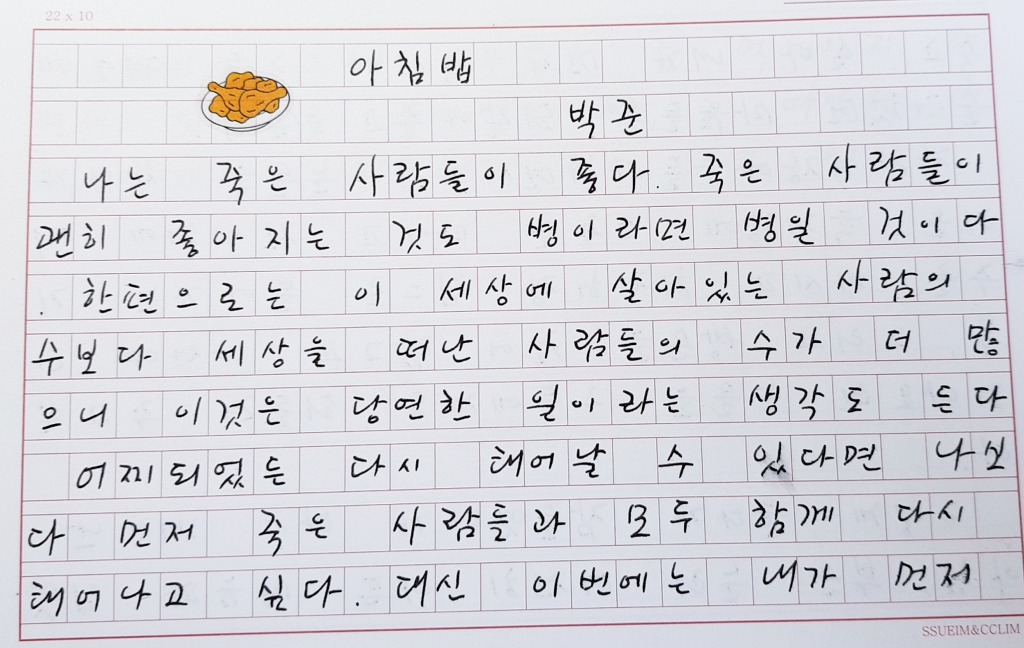 22 x 10
아침밥
박준
나는 죽은 사람들이 좋다. 죽은 사람들이
괜히 좋아지는 것도 병이라면 병일 것이다
. 한편으로는 이 세상에 살아있는 사람의
수보다 세상을 떠난 사람들의 수가 더 많
으니 이것은 당연한 일이라는 생각도 든다
어찌되었든 다시 태어날 수 있다면 나보
다 먼저 죽은 사람들과 모두 함께 다시
태어나고 싶다. 대신 이번에는 내가 먼저
SSUEIM&CCLIM